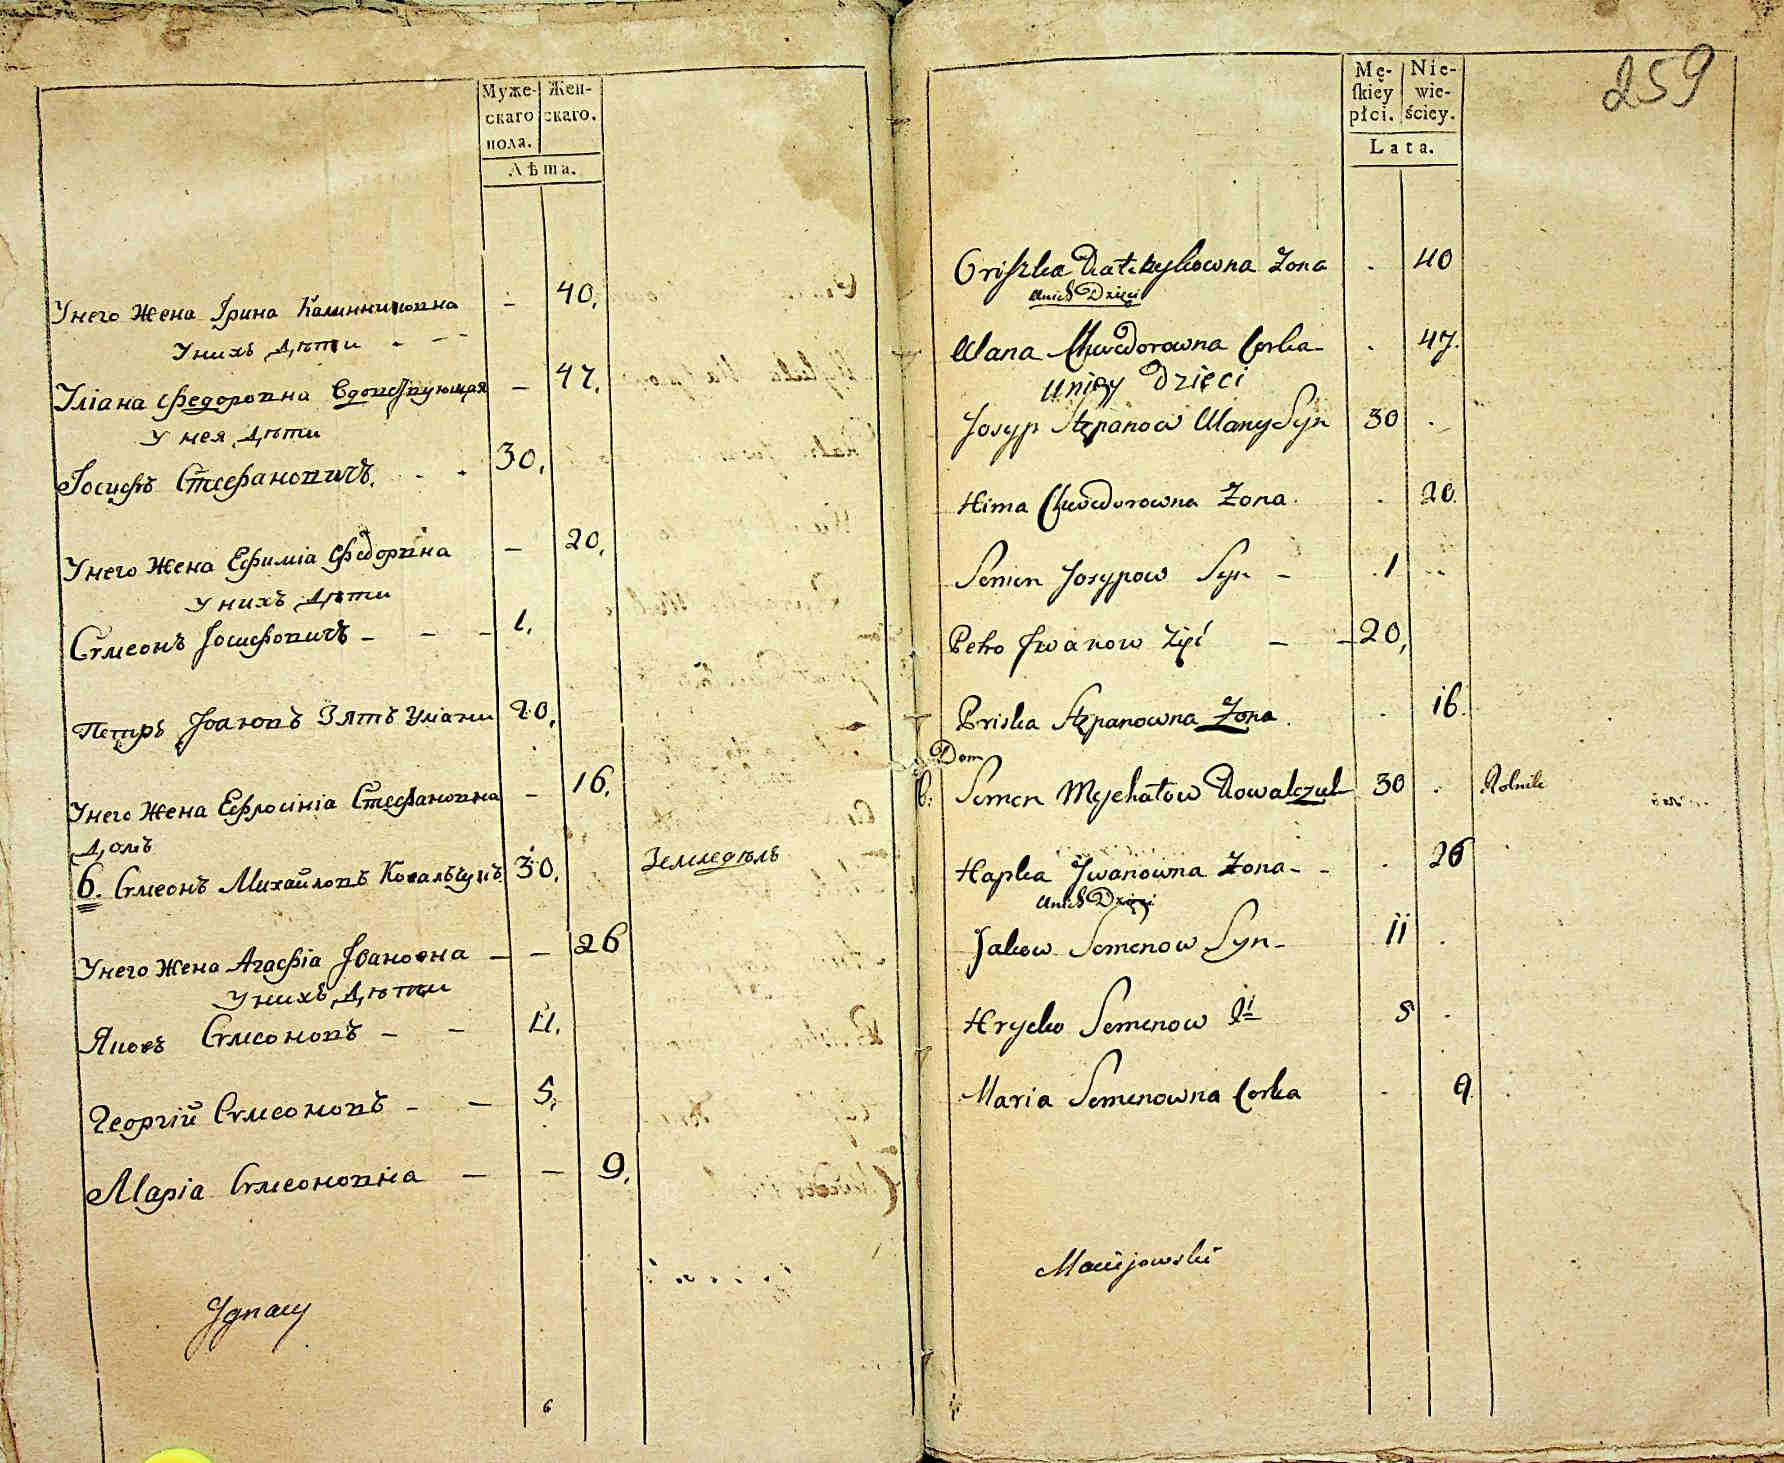 Муже-
скаго
пола.
Жен-
скаго.
Лѣта.
У него Жена Ірина Калиниковна - 40.
У нихъ Дѣти - - -
Уліана Федоровна Вдовствующая - 47.
У нея Дѣти
Іосифъ Стефановичъ. - - 30.
У него Жена Ефиміа Федоровна - 20.
У нихъ Дѣти
Сѵмеонъ Іосифовичъ - - - 1.
Петръ Івановъ Зять Уліаны 20.
У него Жена Ефросініа Стефановна - 16.
Домъ
6. Сѵмеонъ Михайловъ Ковальчукъ 30. Земледѣль
У него Жена Агафіа Івановна - - 26
У нихъ Дѣти
Яковъ Сѵмеоновъ - - 11.
Георгій Сѵмеоновъ - - 5.
Маріа Сѵмеоновна - - 9.
Jgnacy
259
Mę-
skiey
płci.
Nie-
wie-
ściey.
Lata.
Żona . 40
unich Dzieci
Ulana Chwedorowna Corka - . 47.
uniey Dzieci
Josyp Stepanow Ulany Syn 30 .
Hima Chwedorowna Żona . . 20.
Semen Josypow Syn - . 1 ..
Petro Jwanow Zięć - - 20,
Priska Stepanowna Żona . . 16.
Dom
6. Semen Mychałow Kowalczuk 30 . Rolnik
Hapka Jwanowna Żona - - . 26
unich Dzieci
Jakow Semenow Syn - 11 .
Hrycko Semenow 5 .
Maria Semenowna Corka . 9.
Maciejowski